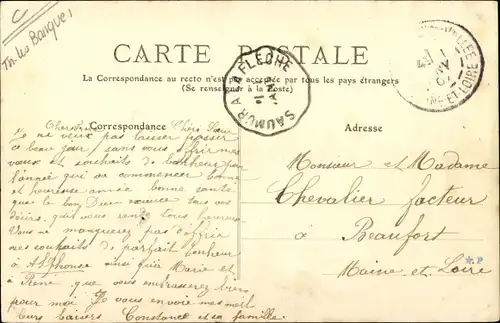 C
Th. les Banque,
CARTE POSTALE
La Correspondance au recto n'est pas acceptée par tous les pays étrangers
(Se renseigner à la Poste)
SAUMUR A LA FLECHE
ET-LOIRE
Correspondance
Adresse
Chers Frère Chère Sœur
Je ne veux pas laisser passer
ce beau jour sans vous offrir mes
vœux et souhaits de bonheur pour
l'année qui va commencer bonne
et heureuse année bonne santé
que le bon Dieu exauce tous vos
désirs. qui vous rende tous heureux
Vous ne manquerez pas d'offrir
mes souhaits de parfait bonheur
à Alphonse ainsi qu'à Marie et
à René que vous embrasserez bien
pour moi Je vous envoie mes meil
leurs baisers Constance et sa famille
Monsieur et Madame
Chevalier facteur
à Beaufort
Maine et Loire
*P